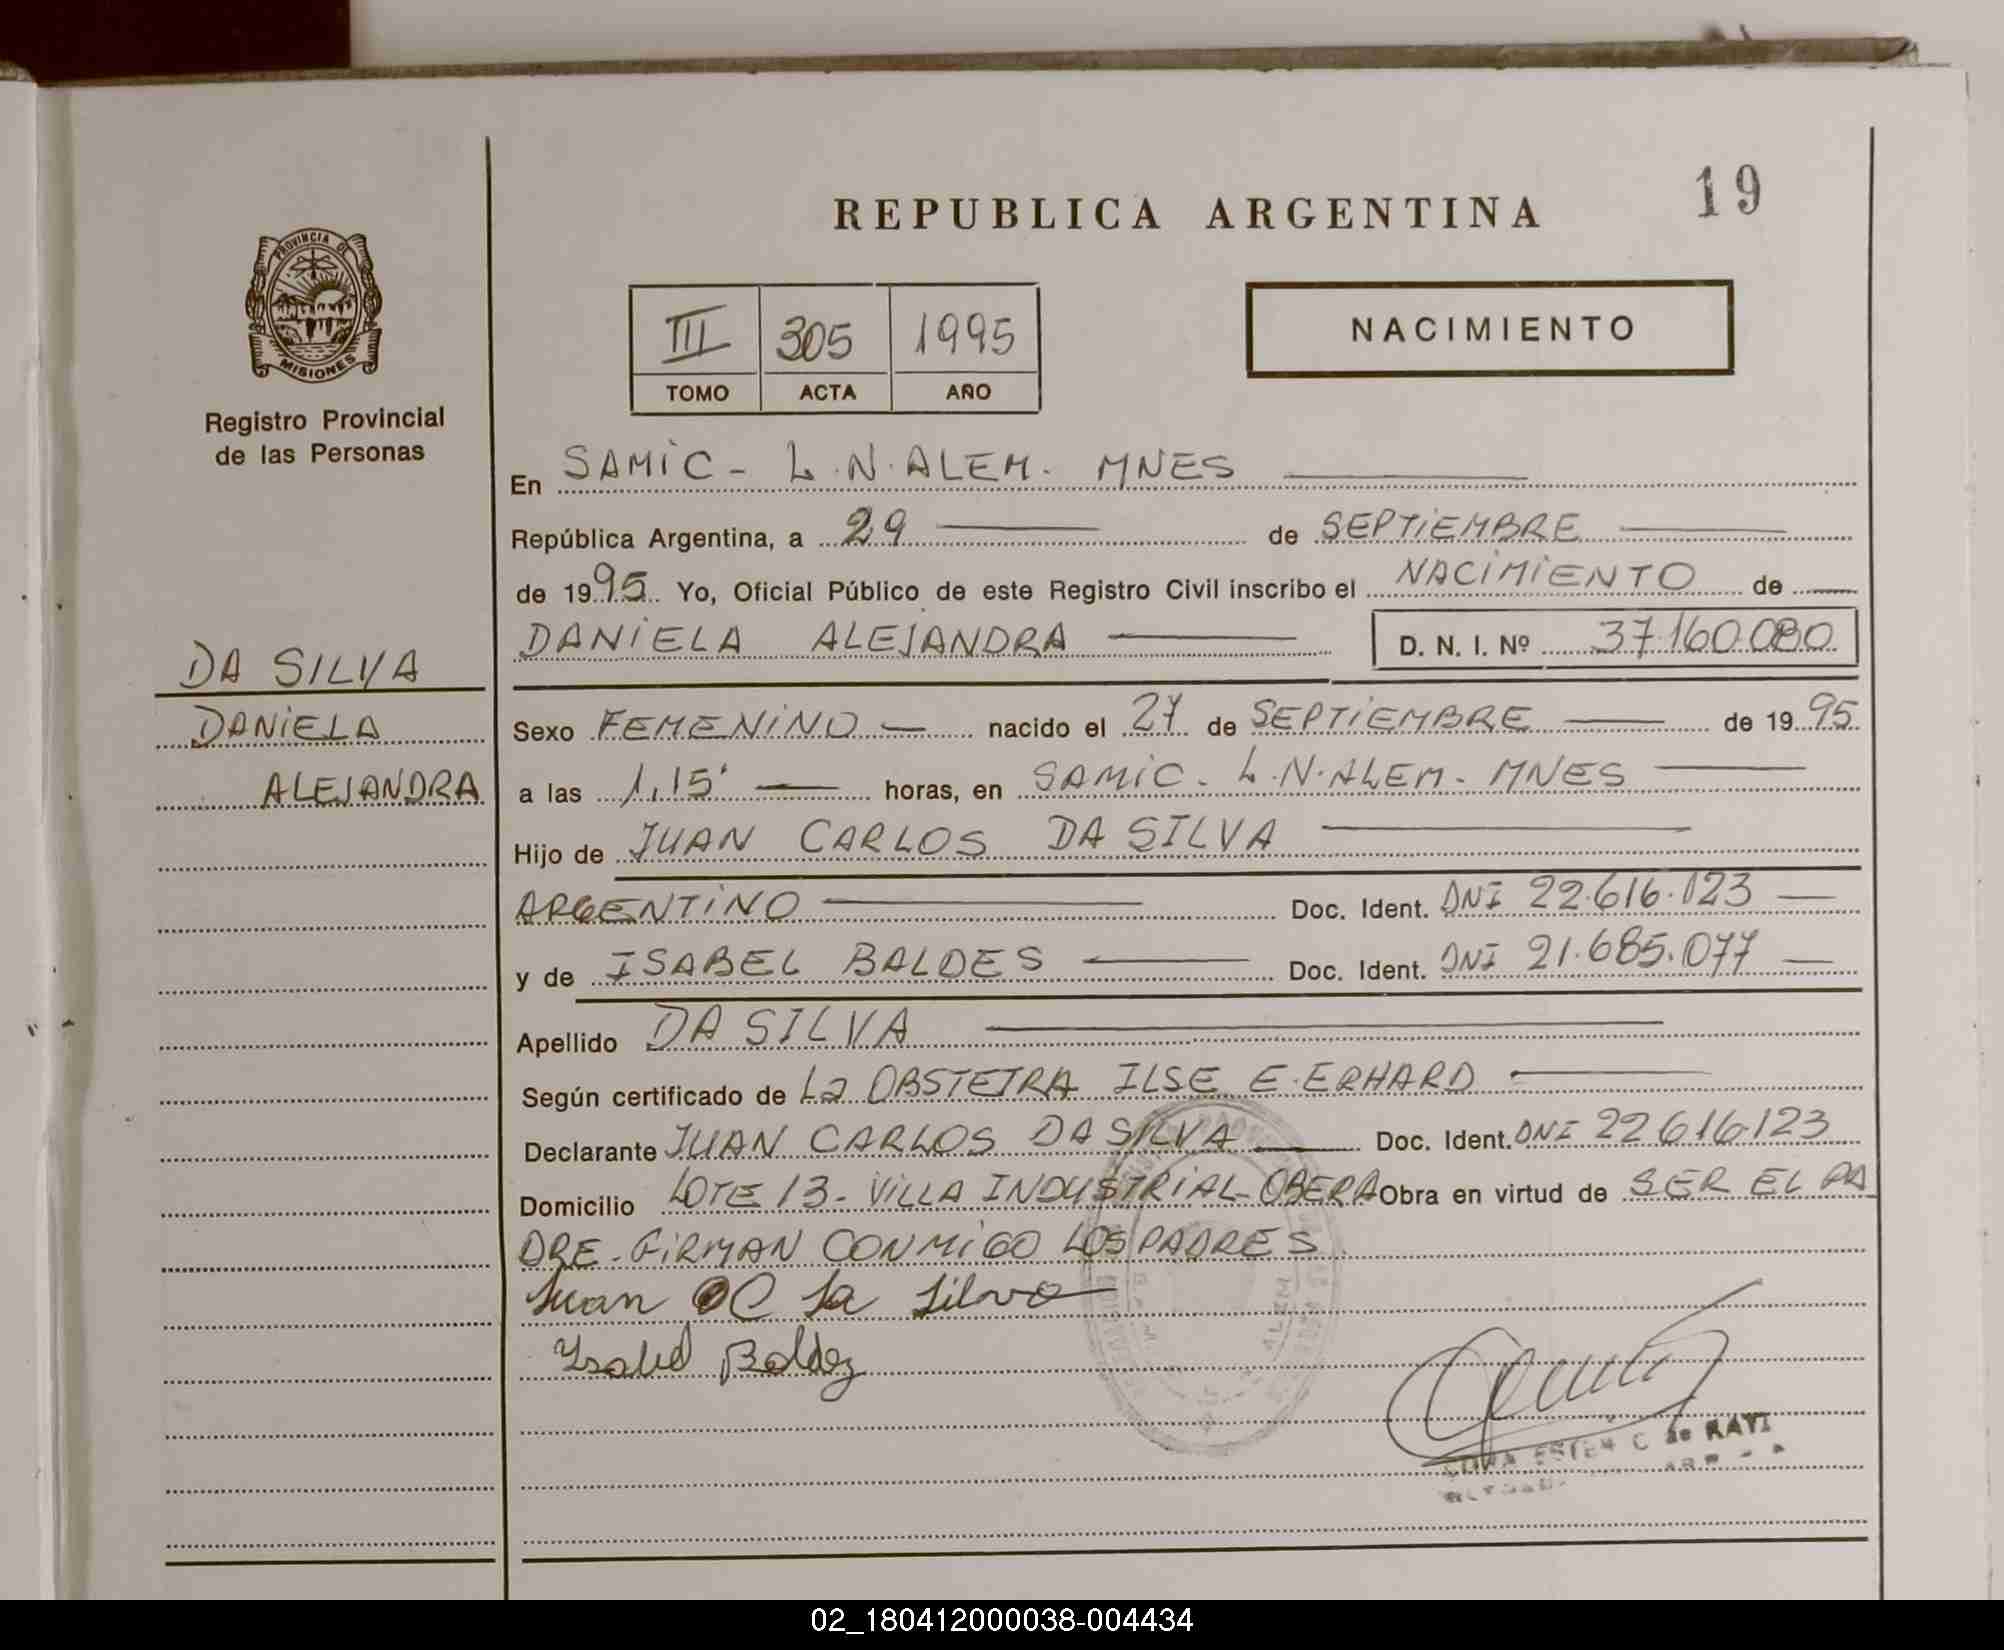 REPUBLICA ARGENTINA
19
PROVINCIA DE
MISIONES
Registro Provincial
de las Personas
III 305 1995
TOMO ACTA AÑO
NACIMIENTO
En SAMIC - L.N. ALEM. MNES
República Argentina, a 29 de SEPTIEMBRE
de 1995. Yo, Oficial Público de este Registro Civil inscribo el NACIMIENTO de
DANIELA ALEJANDRA D. N. I. Nº 37.160.080
DA SILVA
DANIELA
ALEJANDRA
Sexo FEMENINO nacido el 27 de SEPTIEMBRE de 1995
a las 1,15' horas, en SAMIC - L.N. ALEM - MNES
Hijo de JUAN CARLOS DA SILVA
ARGENTINO Doc. Ident. DNI 22.616.123
y de ISABEL BALDES Doc. Ident. DNI 21.685.077
Apellido DA SILVA
Según certificado de La OBSTETRA ILSE E. ERHARD
Declarante JUAN CARLOS DA SILVA Doc. Ident. DNI 22616123
Domicilio LOTE 13 - VILLA INDUSTRIAL - OBERA Obra en virtud de SER EL PA
DRE - FIRMAN CONMIGO LOS PADRES.
Juan C Da Silva
Ysabel Baldez
ESTER C de RAVI
02_180412000038-004434